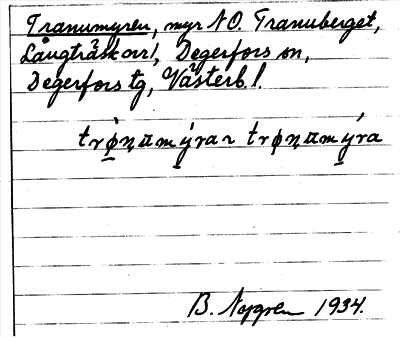 Tranumyren, myr NO. Tranuberget,
Långträsk orr!, Degerfors sn,
Degerfors tg, Västerb. l.
trǫ̀numýrar trǫnumýra
B. Nygren 1934.